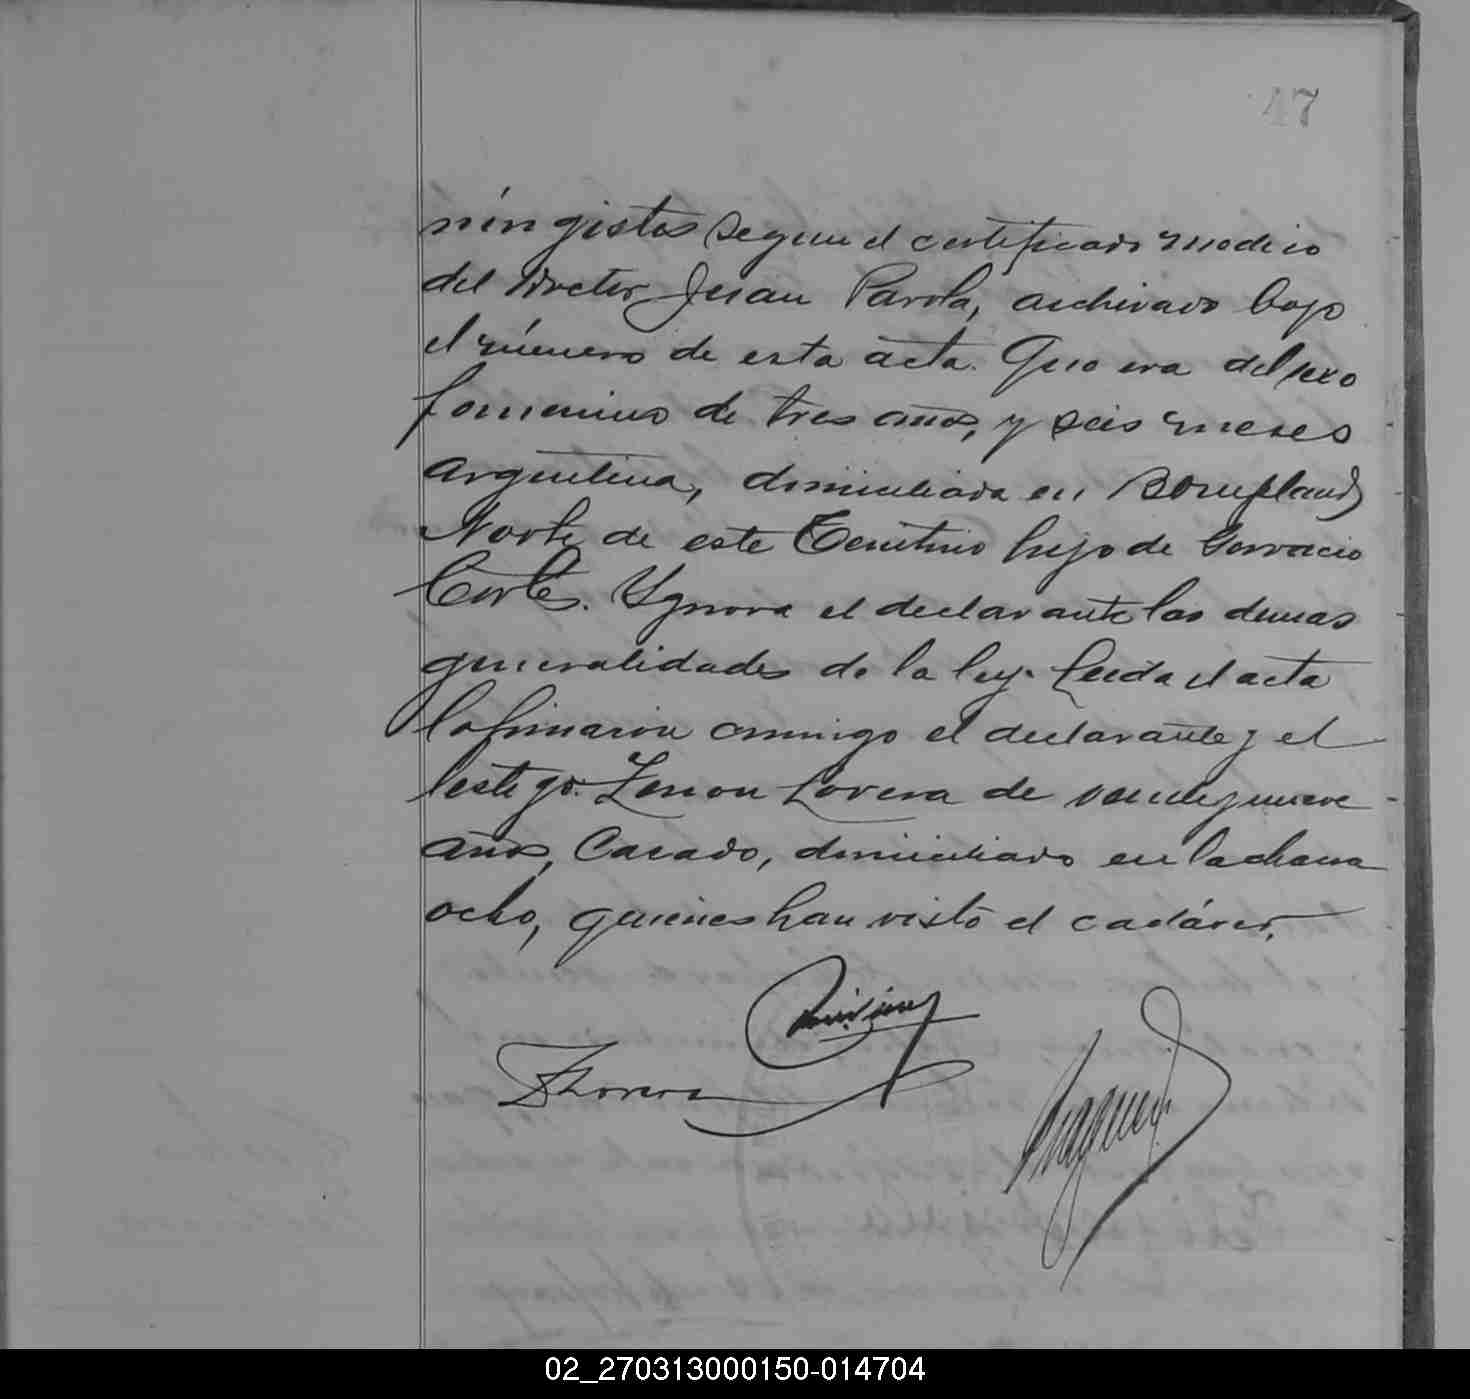 47
ningistos segun el certificado medico
del Doctor Juan Parola, archivado bajo
el número de esta acta. Que era del sexo
femenino de tres años, y seis meses
Argentina, domiciliada en Bompland
Norte de este Territorio hijo de Gervacio
Cortes. Ygnora el declarante las demas
generalidades de la ley. Leida el acta
la firmaron conmigo el declarante y el
testigo. Zenon Lovera de veintey nueve
años, Casado, domiciliado en la chacra
ocho, quienes han visto el cadáver.
ZLovera
02_270313000150-014704